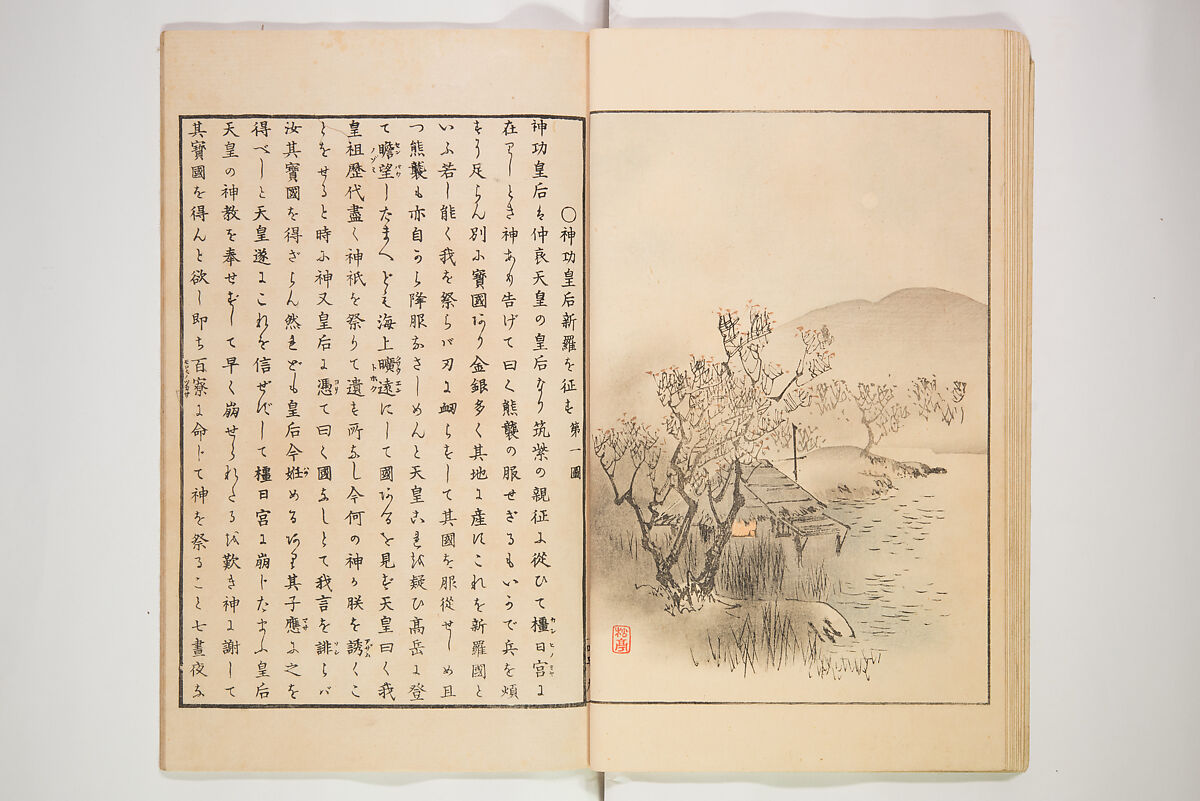 〇神功皇后新羅を征す 第一圖
神功皇后は仲哀天皇の皇后なり筑紫の親征に從ひて橿日宮に
在りしとき神あり告げて曰く熊襲の服せざるもいかで兵を煩
すに足らん別に寶國あり金銀多く其地に産にこれを新羅國と
いふ若し能く我を祭らバ刃に衂らをして其國を服從せしめ且
つ熊襲も亦自から降服なさしめんと天皇これを疑ひ高岳に登
て瞻望したまへども海上曠遠にして國あるを見ず天皇曰く我
皇祖歷代盡く神祇を祭りて遺す所なし今何の神か朕を誘くこ
とをせると時に神又皇后に憑て曰く國なしとて我言を誹らバ
汝其寶國を得ざらん然れども皇后今姙めるあり其子應に之を
得べしと天皇遂にこれを信ぜずして橿日宮に崩じたまふ皇后
天皇の神教を奉せずして早く崩せられたるを歎き神に謝して
其寶國を得んと欲し即ち百寮に命じて神を祭ること七晝夜な